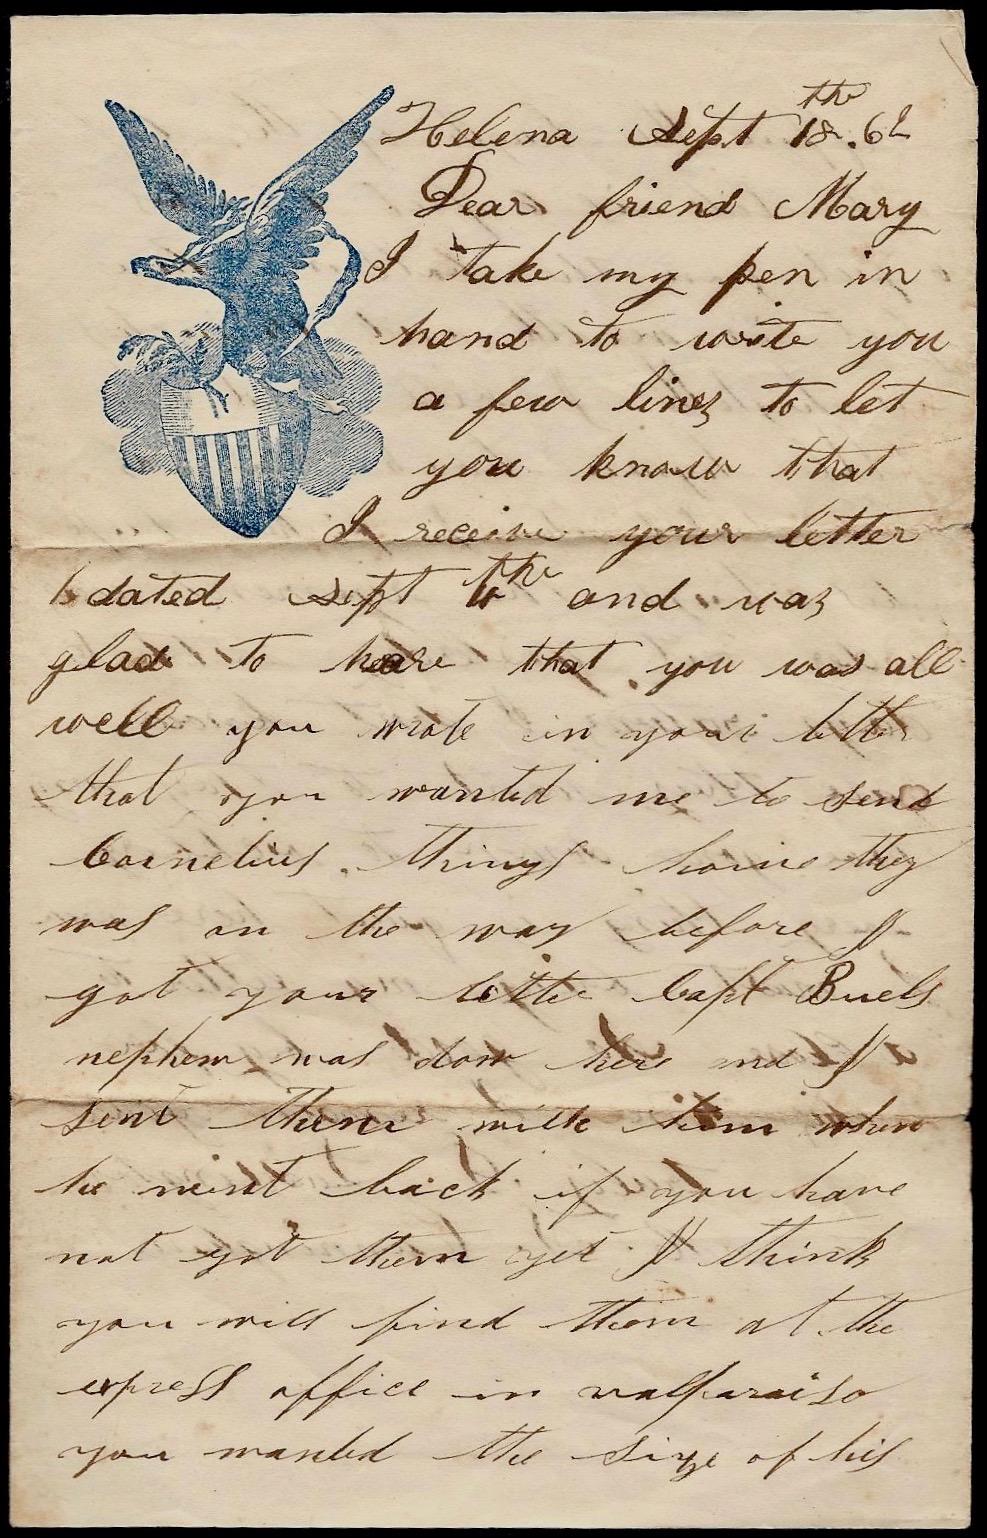 Helena Sept 18th .62
Dear friend Mary
I take my pen in
hand to write you
a few lines to let
you know that
I receive your letter
dated Sept th and was
glad to heare that you was all
well you wrote in your
that you wanted me to send
Cornelius things home they
was on the way before I
got your Capt Buels
nephew was down here and I
sent them with him when
he went back if you have
not got them yet I think
you will find them at the
express office in valparaiso
you wanted the size of his